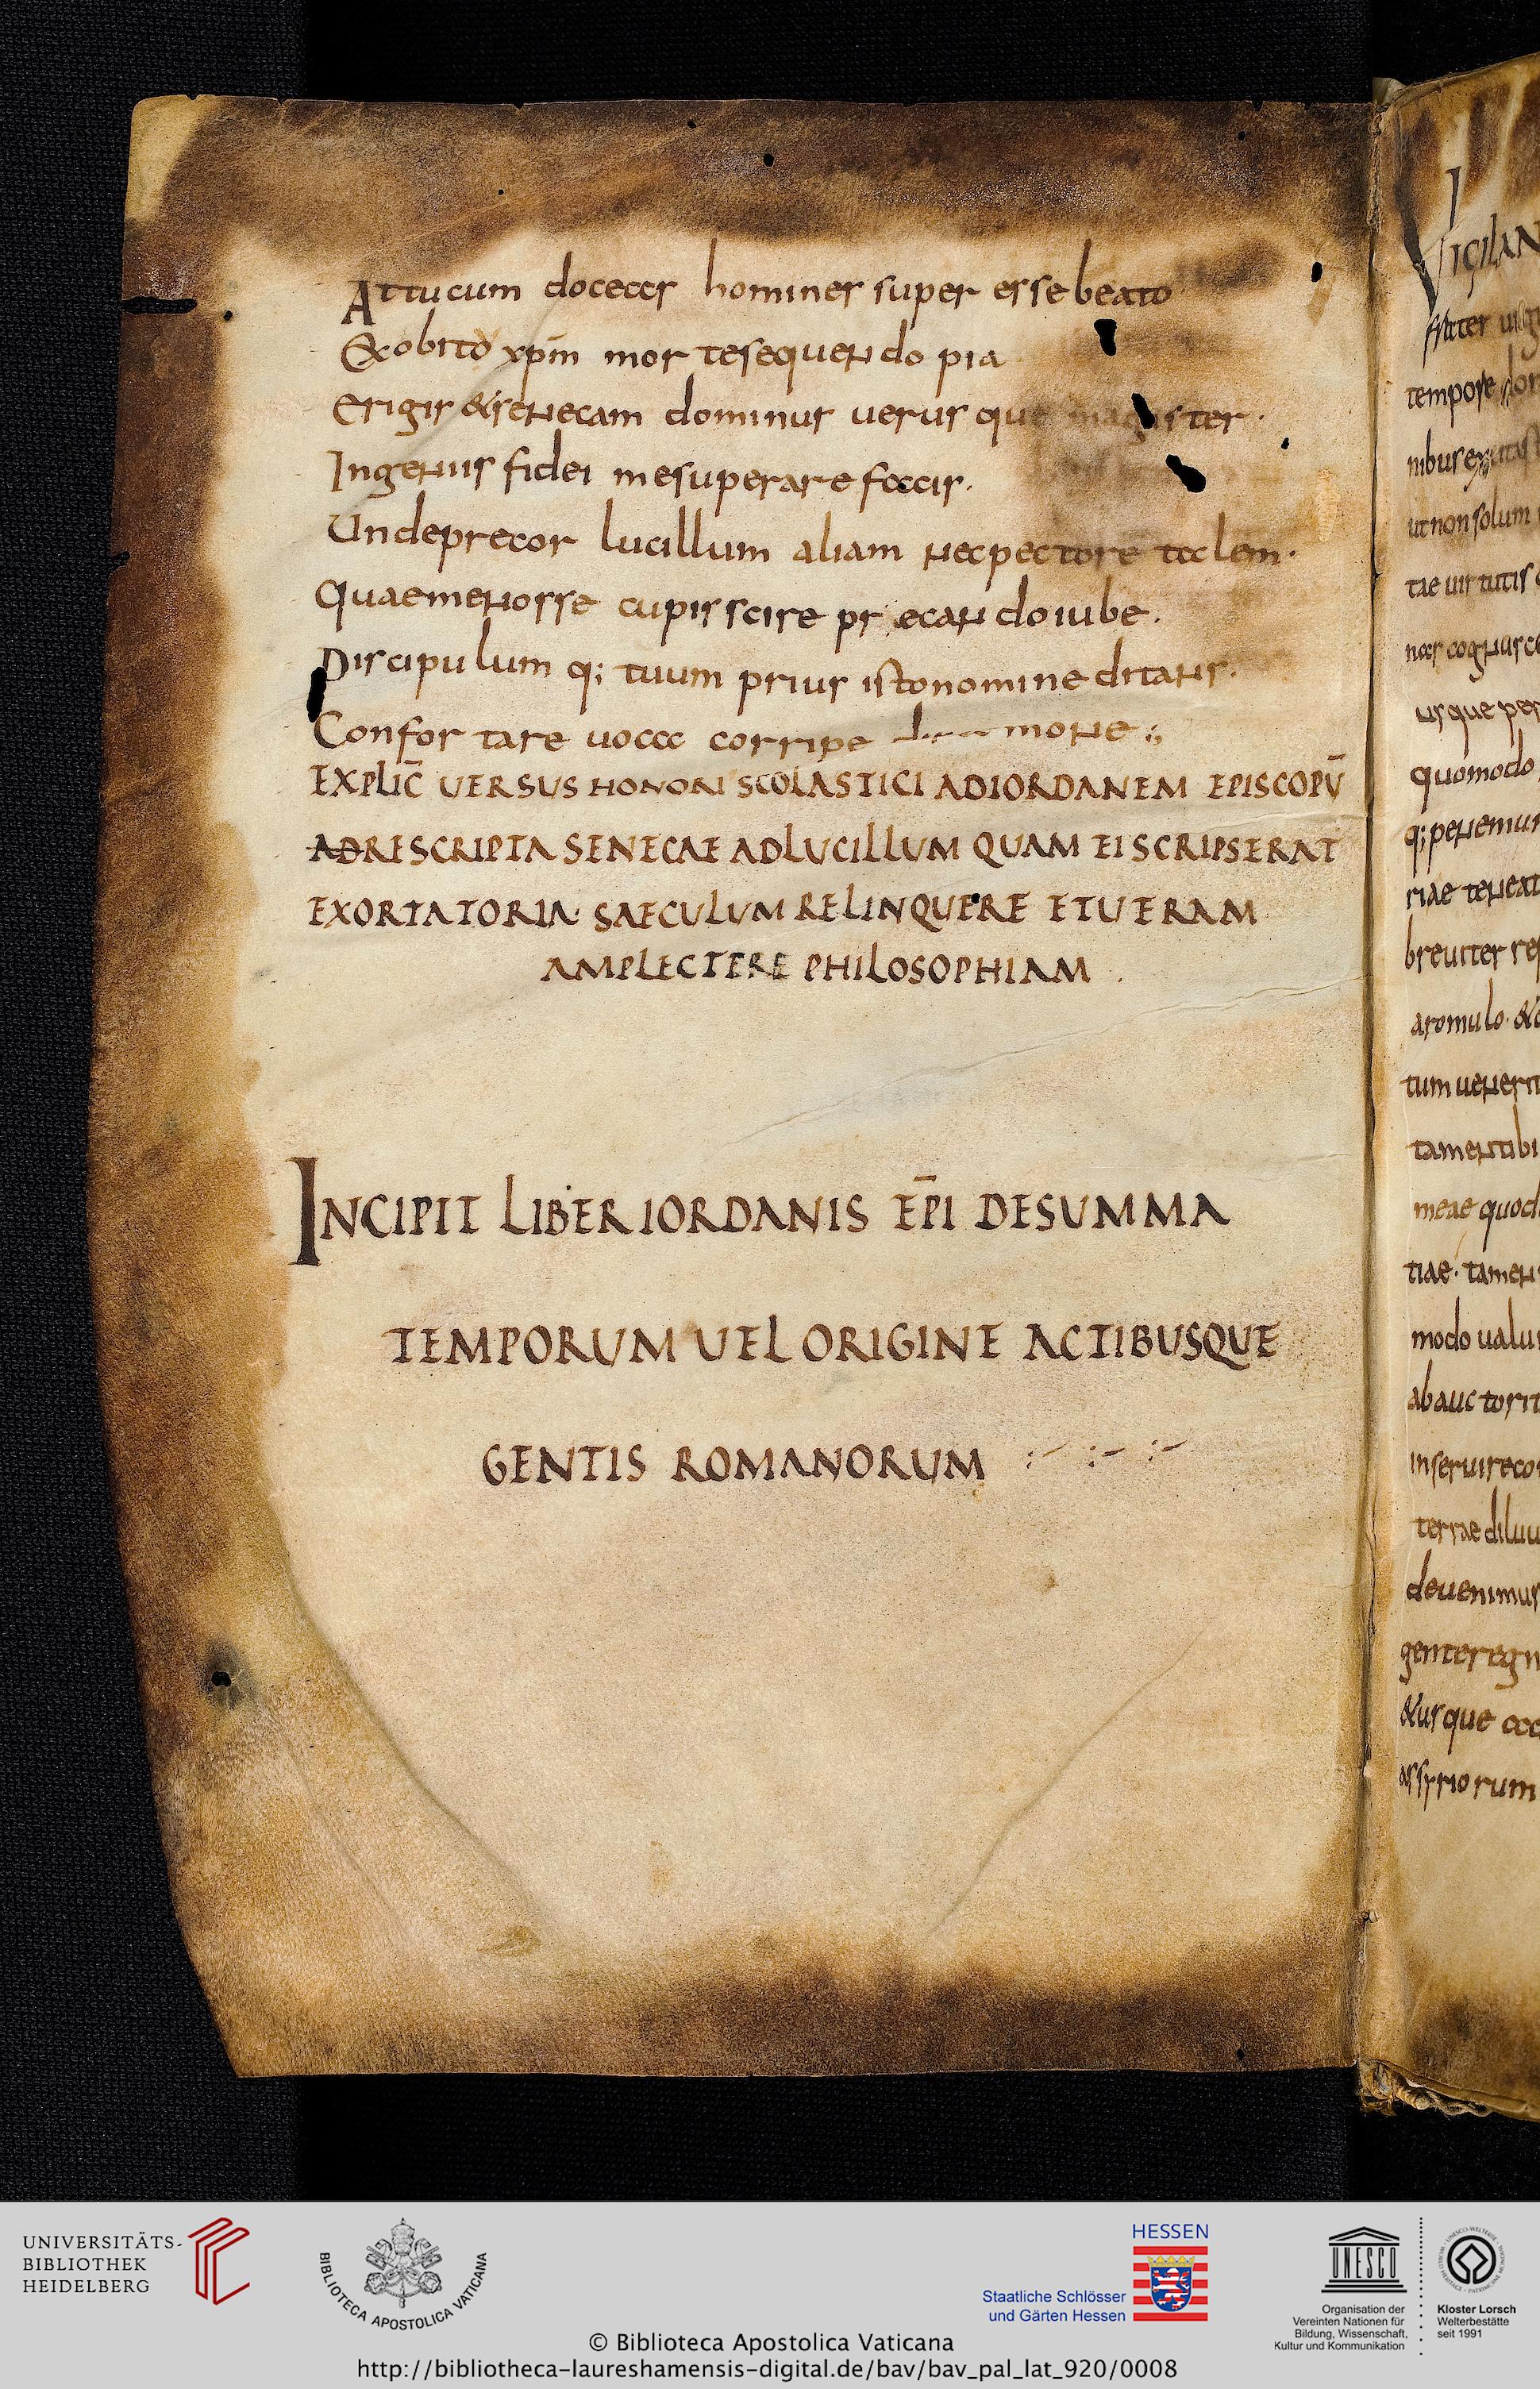 Attu cum doceas homines super esse beato
Ex obito xp̄m mortese quendo pia
Erigis & senecam dominus verus que magister.
Ingenuis fidei me superare facis.
Unde precor lucillum aliam nec pectore talem.
Quae me nosse cupis scire precando iube.
Discipulum q; tuum prius isto nomine ditans.
Confortare voca corripe mone
EXPLIC̄ UERSUS HONORI SCOLASTICI AD IORDANEM EPISCOPŪ
AD RESCRIPTA SENECAE AD LUCILLUM QUAM EI SCRIPSERAT
EXORTATORIA· SAECULUM RELINQUERE ET UERAM
AMPLECTERE PHILOSOPHIAM
INCIPIT LIBER IORDANIS EP̄I DE SUMMA
TEMPORUM UEL ORIGINE ACTIBUSQUE
GENTIS ROMANORUM
Vigilan
frater
tempore dor
nibus
ut non solum
tae virtutis
nas cognusc
usque per
quomodo
q; penemur
riae teneat
breviter re
a romulo· &
tum venerit
tamen tibi
meae quod
tiae· tamen
modo valu
ab auctorit
inservire co
terrae diluu
devenimus
gente regn
& usque
assyriorum
UNIVERSITÄTS-
BIBLIOTHEK
HEIDELBERG
BIBLIOTECA APOSTOLICA VATICANA
HESSEN
Staatliche Schlösser
und Gärten Hessen
UNESCO
Organisation der
Vereinten Nationen für
Bildung, Wissenschaft,
Kultur und Kommunikation
Kloster Lorsch
Welterbestätte
seit 1991
© Biblioteca Apostolica Vaticana
http://bibliotheca-laureshamensis-digital.de/bav/bav_pal_lat_920/0008